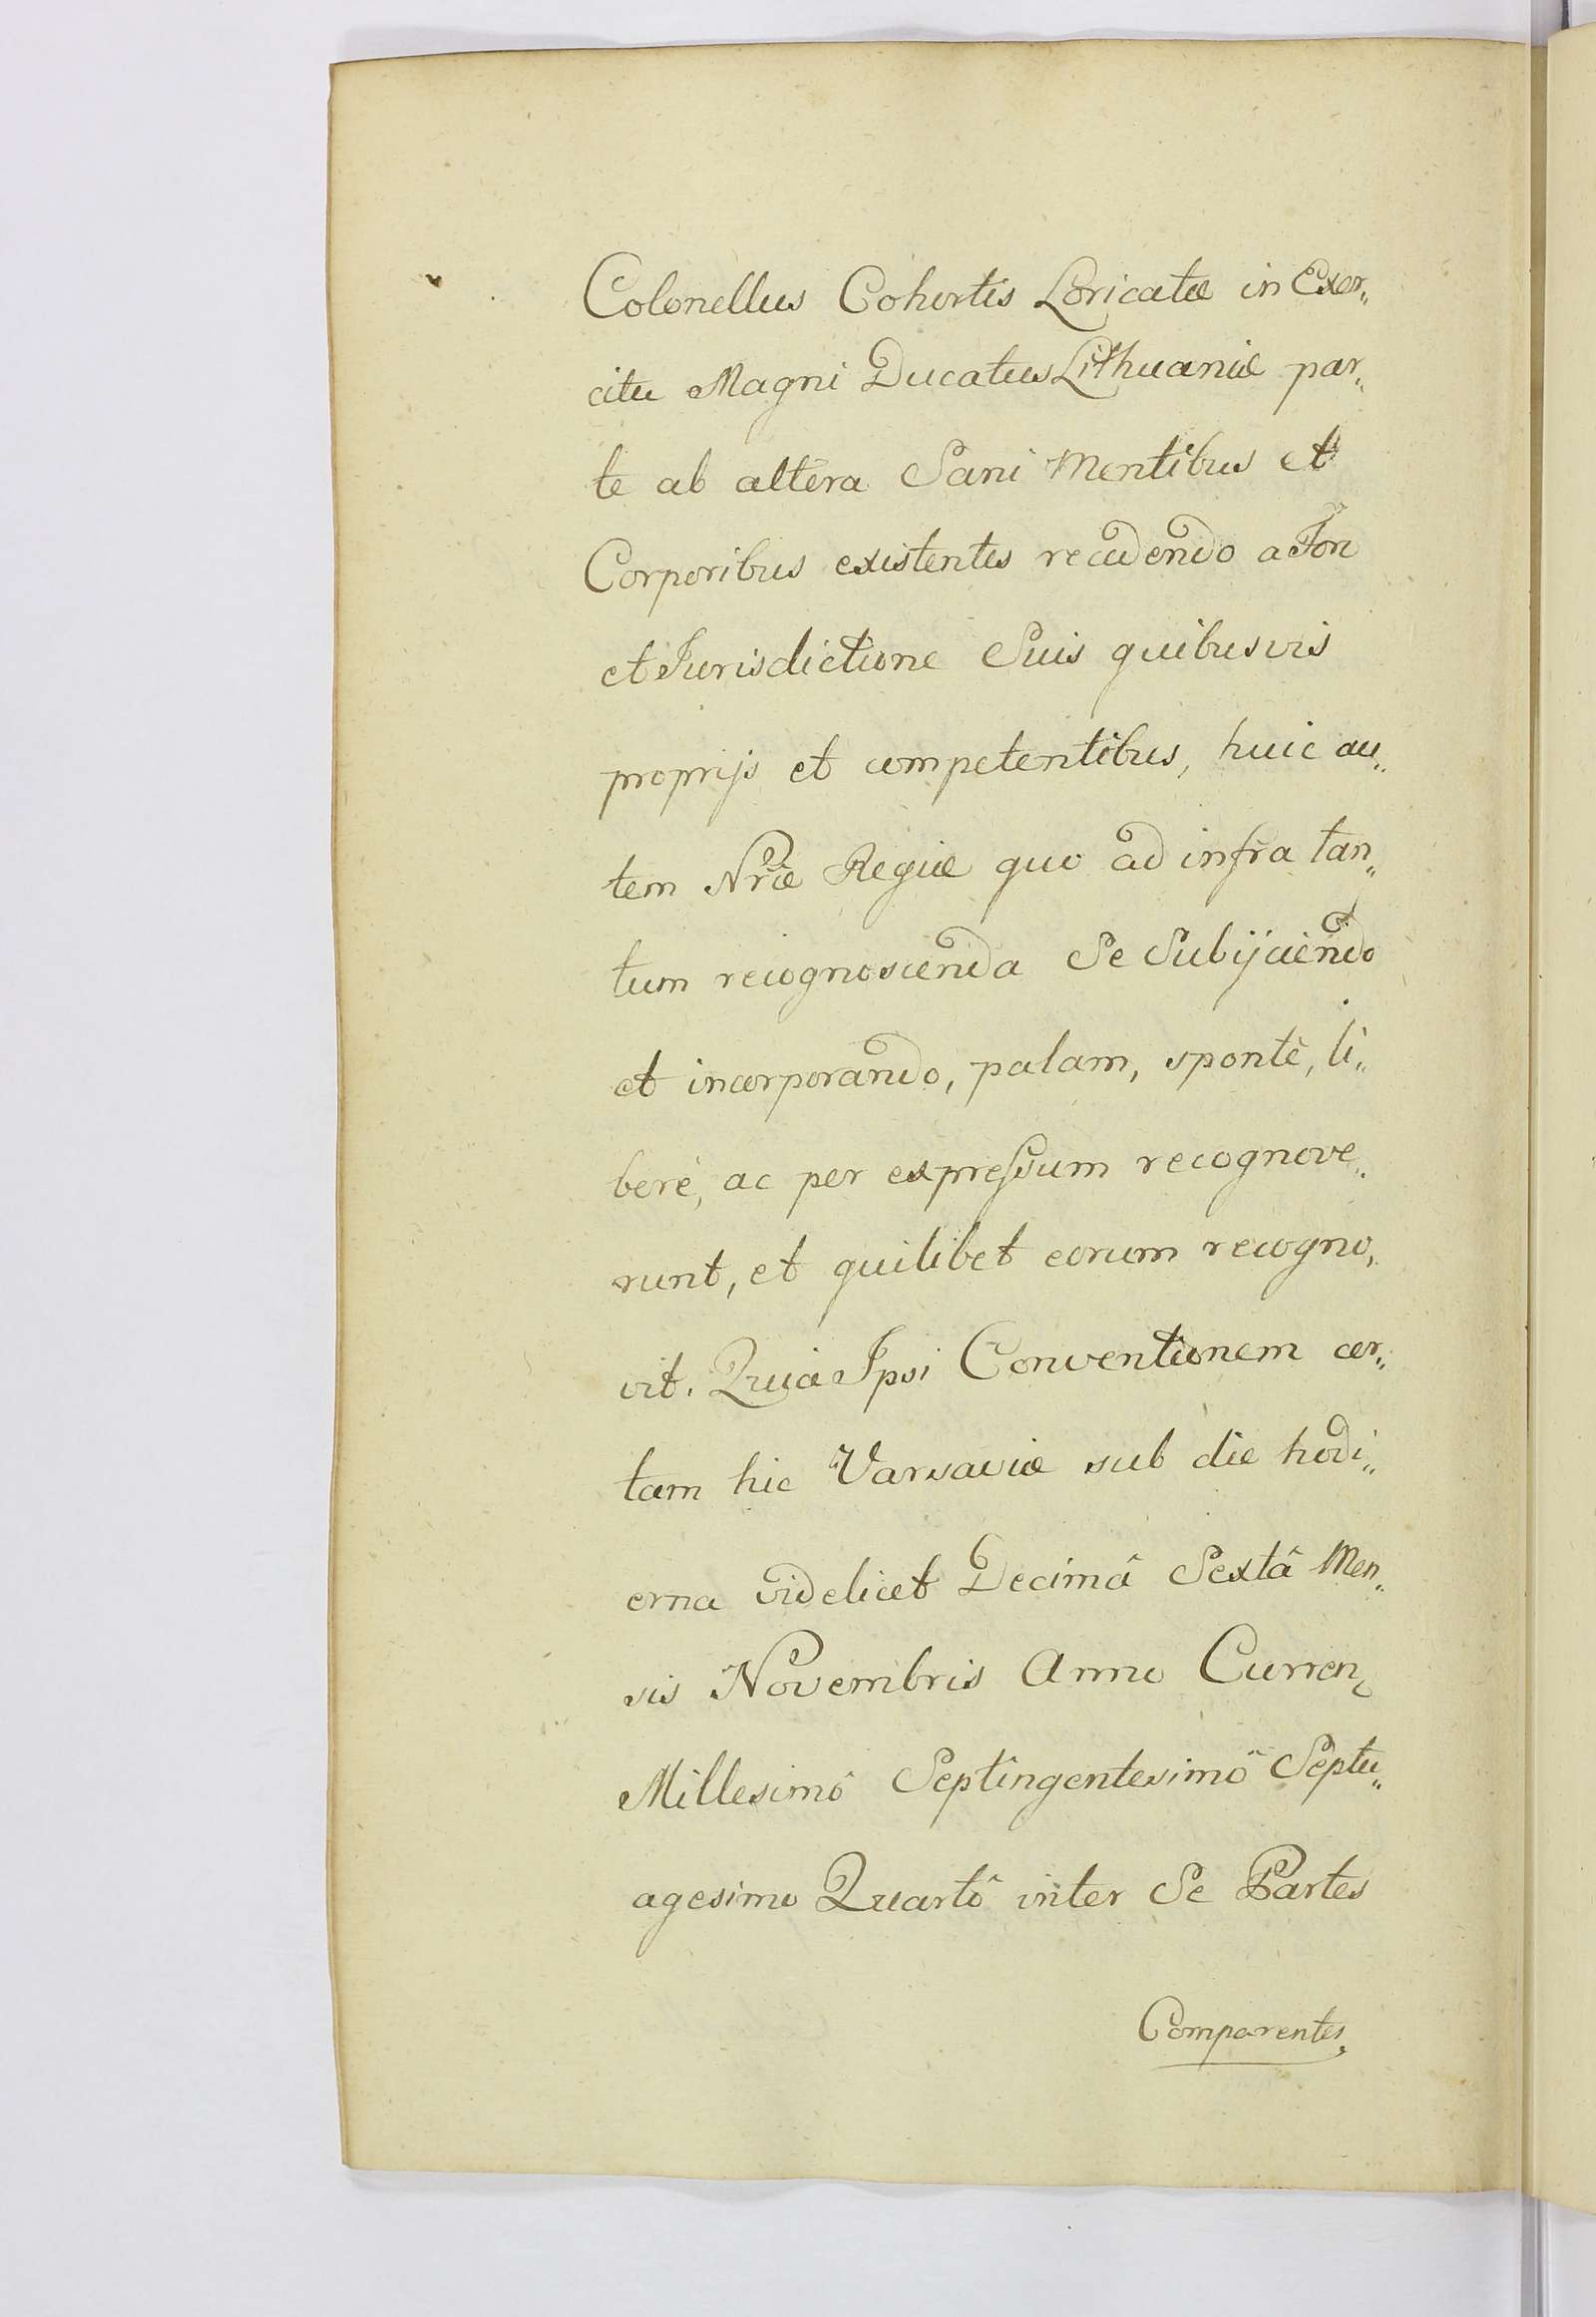 Colonellus Cohortis Loricatæ in Exer„
citu Magni Ducatus Lithuaniæ par„
te ab altera Sani Mentibus et
Corporibus existentes recedendo a Foro
et Jurisdictione Suis quibusvis
proprijs et competentibus, huic au„
tem Nræ Regiæ quo ad infra tan„
tum recognoscenda Se Subijciendo
et incorporando, palam, spontè, li„
berè, ac per expressum recognove„
runt, et quilibet eorum recogno„
vit. Quia Ipsi Conventionem cer„
tam hic Varsaviæ sub die hodi„
erna videlicet Decimâ Sextâ Men„
sis Novembris Anno Curren
Millesimô Septingentesimô Septu„
agesimo Quartô inter Se Partes
Comparentes,